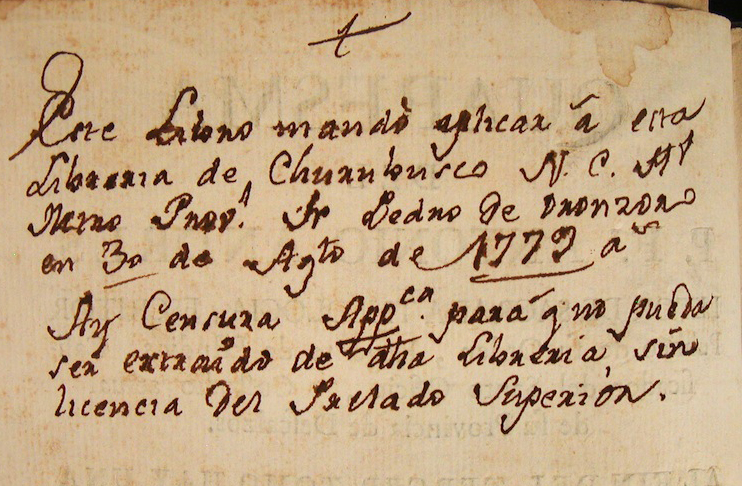 Este Libro mandò aplicar â esta
Libreria de Churubusco N. C. H.º
Ntrno Prov.l Fr Pedro de Oronzoro
en 30 de Agto de 1779 a.s
Ay Censura App.ca para q no pueda
ser extraido de dha Libreria, sin
licencia del Prelado Superior.